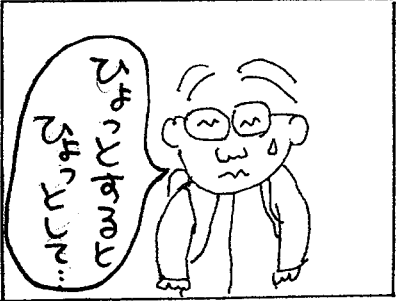 ひょっとすると
ひょっとして…